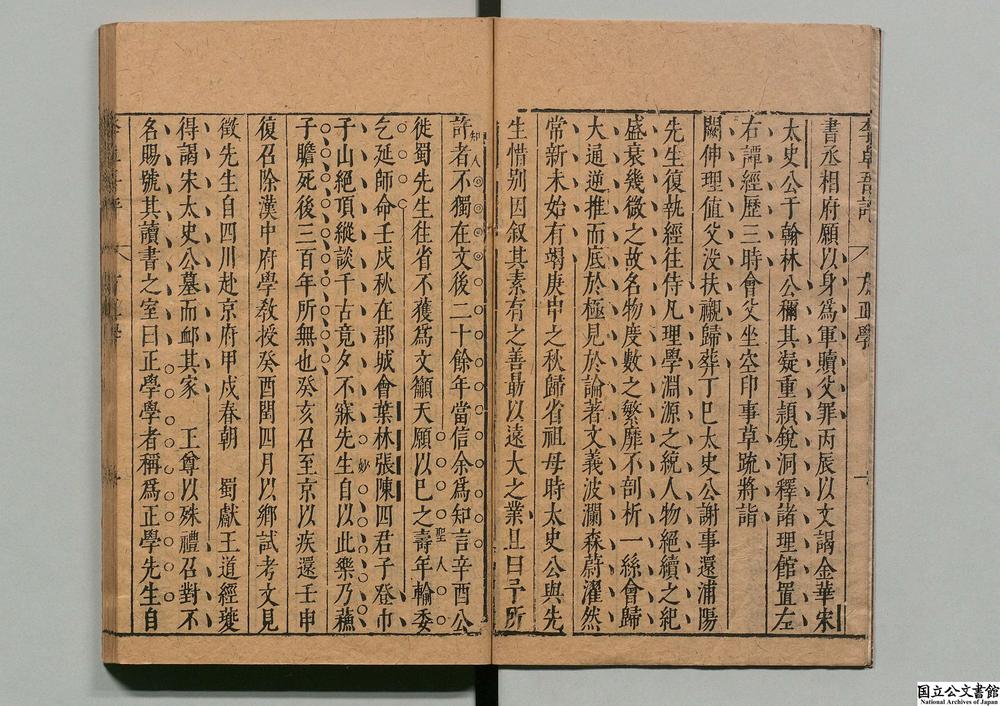 書丞相府願以身爲軍贖父罪丙辰以文謁金華宋
太史公于翰林公穪其凝重頴銳洞釋諸理館置左
右譚經歷三時會父坐空印事草䟽將詣
闕伸理值父没扶櫬歸葬丁巳太史公謝事還浦陽
先生復執經往侍凡理學淵源之統人物絕續之紀
盛衰幾微之故名物度數之繁靡不剖析一絲會歸
大通逆推而底於極見於論著文義波瀾森蔚濯然
常新未始有竭庚申之秋歸省祖母時太史公與先
生惜别因叙其素有之善勗以遠大之業且曰予所
許者不獨在文後二十餘年當信余爲知言辛酉公
知人
徙蜀先生往省不獲爲文籲天願以巳之壽年輸委
聖人
乞延師命壬戌秋在郡城會葉林張陳四君子登巾
子山絕頂縱談千古竟夕不寐先生自以此樂乃蘓
妙
子瞻死後三百年所無也癸亥召至京以疾還壬申
復召除漢中府學敎授癸酉閏四月以鄉試考文見
徵先生自四川赴京府甲戌春朝 蜀獻王道經䕫
得謁宋太史公墓而䘏其家 王尊以殊禮召對不
名賜號其讀書之室曰正學學者稱爲正學先生自
方正學
一
国立公文書館
National Archives of Japan